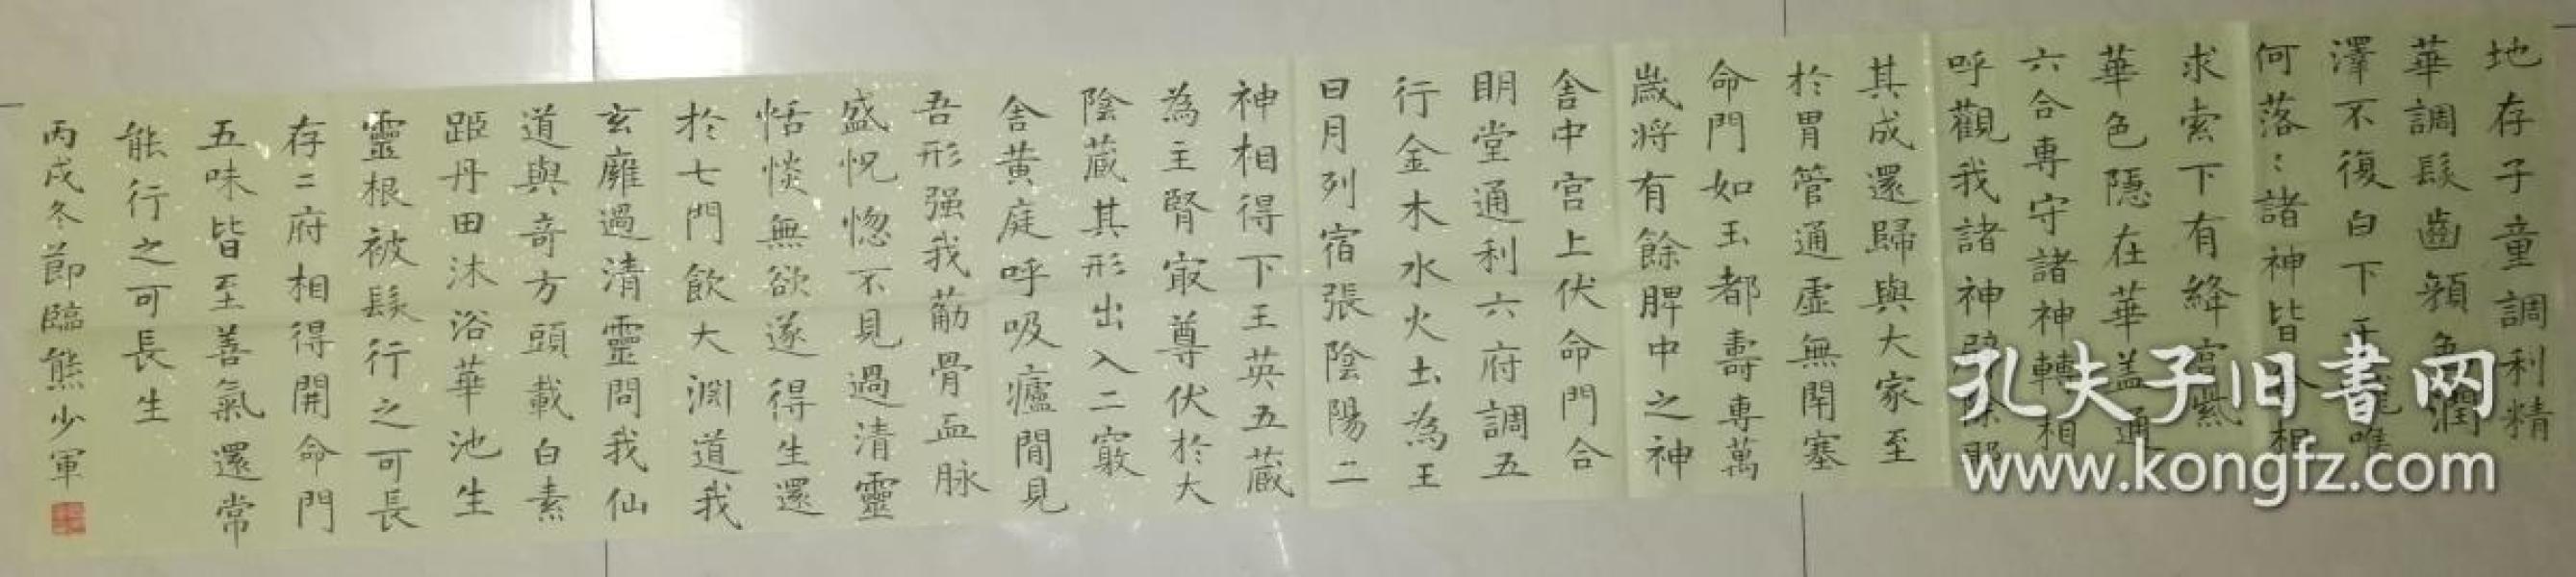 地存子童調利精
華調髮齒顏色潤
澤不復白下
何落〻諸神皆相
求索下有絳宮紫
華色隱在華盖通
六合專守諸神轉相
呼觀我諸神辟除耶
其成還歸與大家至
於胃管通虛無閉塞
命門如玉都壽專萬
歲將有餘脾中之神
舍中宮上伏命門合
明堂通利六府調五
行金木水火土為王
日月列宿張陰陽二
神相得下王英五藏
為主腎㝡尊伏於大
陰藏其形出入二竅
舍黃庭呼吸廬間見
吾形强我筋骨血脉
盛怳惚不見過清靈
恬惔無欲遂得生還
於七門飲大淵道我
玄廱過清靈問我仙
道與奇方頭載白素
距丹田沐浴華池生
靈根被髮行之可長
存二府相得開命門
五味皆至善氣還常
能行之可長生
丙戌冬節臨熊少軍
孔夫子旧书网
www.kongfz.com